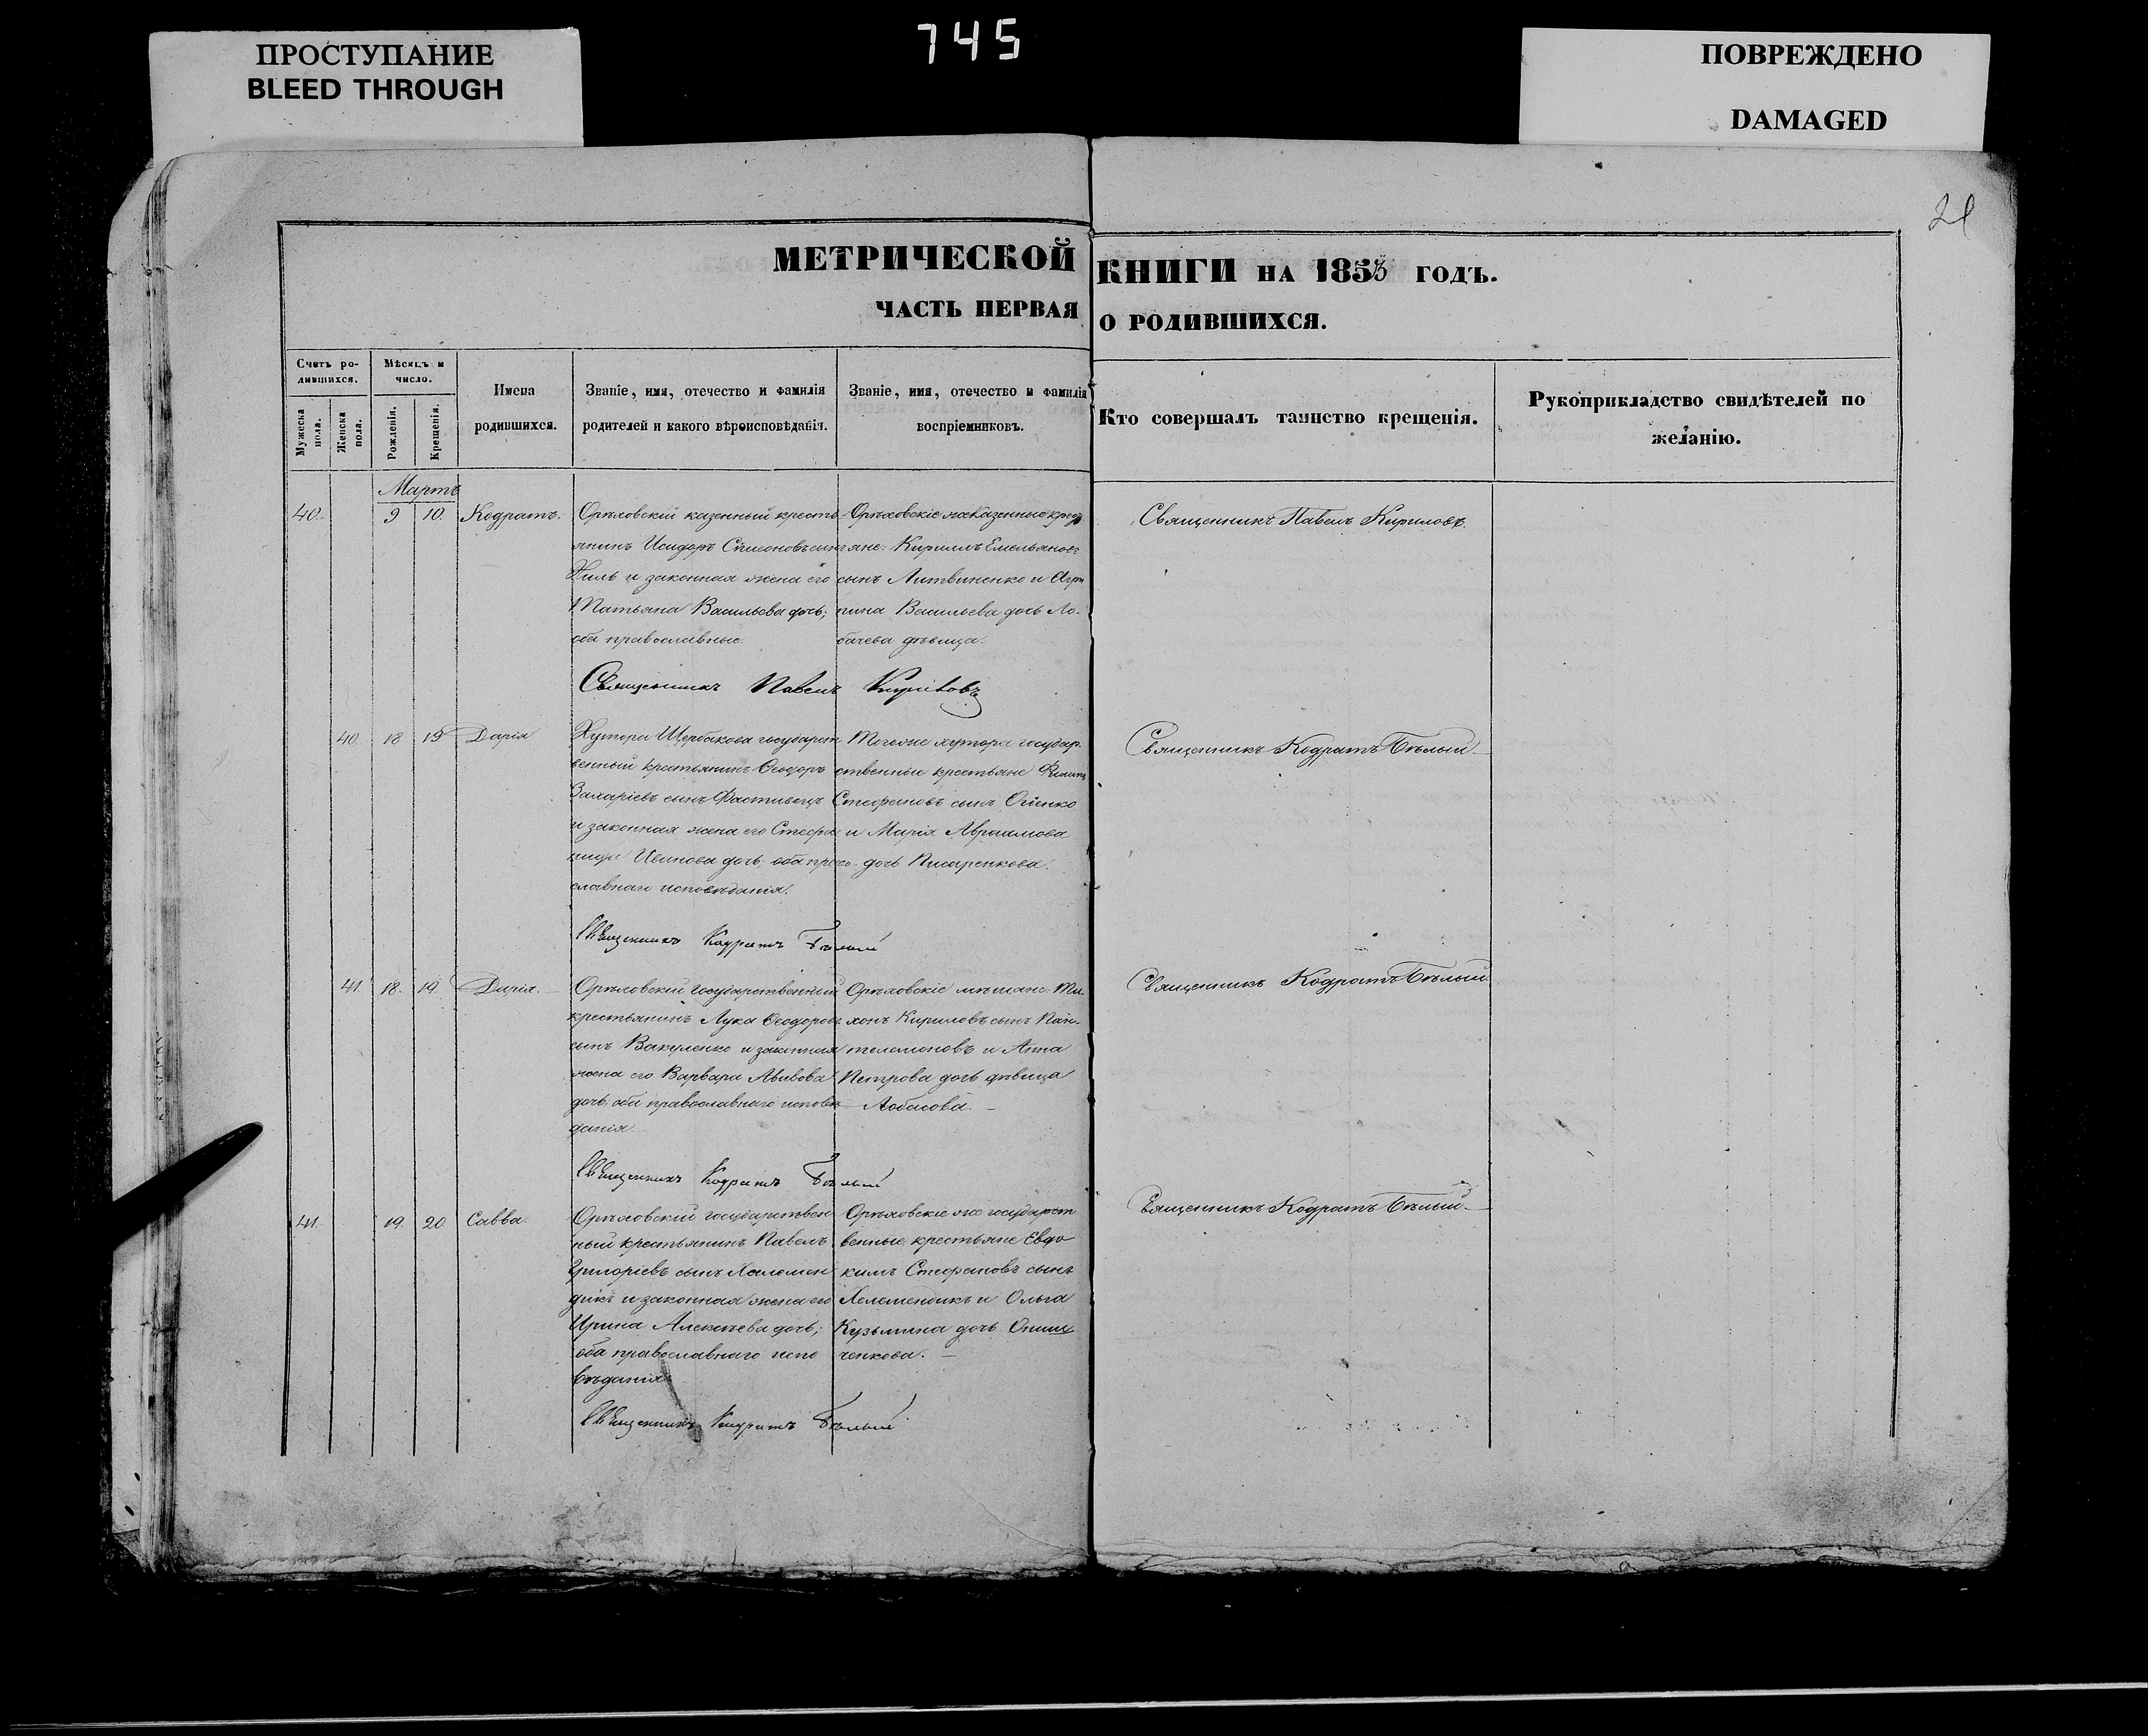 ПРОСТУПАНИЕ
BLEED THROUGH
745
ПОВРЕЖДЕНО
DAMAGED
21
МЕТРИЧЕСКОЙ КНИГИ НА 1853 ГОДЪ.
ЧАСТЬ ПЕРВАЯ О РОДИВШИХСЯ.
Счетъ ро-
дившихся.
Мужеска
пола.
Женска
пола.
Мѣсяцъ и
число.
Рожденія.
Крещенія.
Имена
родившихся.
Званіе, имя, отечество и фамилія
родителей и какого вѣроисповѣданія.
Званіе, имя, отечество и фамилія
воспріемниковъ.
Кто совершалъ таинство крещенія.
Рукоприкладство свидѣтелей по
желанію.
Мартъ
40. 9 10. Кодратъ.
Орѣховскій казенный кресть-
янинъ Исидоръ Симеоновъ сынъ
и законная жена его
Татьяна Васильева дочь;
оба православные.
Орѣховскіе же казенные крес
яне: Кириллъ Емельяновъ
сынъ Литвиненко и Агри
пина Васильева дочь Ло-
бачева дѣвица.
Священникъ Павелъ Кириловъ.
Священникъ Павелъ Кириловъ
40 18 19 Дарія
Хутора Щербакова государст
венный крестьянинъ Ѳеодоръ
Захаріевъ сынъ Фастивецъ
и законная жена его Стефа
нида Иванова дочь, оба право-
славнаго исповѣданія.
Тогоже хутора государ-
ственные крестьяне Филипъ
Стефановъ сынъ Огіенко
и Марія Авраамова
дочь Писаренкова.
Священникъ Кодратъ Бѣлый
Священникъ Кодратъ Бѣлый
41. 18. 19. Дарія.
Орѣховскій государственный
крестьянинъ Лука Ѳеодоровъ
сынъ Вакуленко и законная
жена его Варвара
дочь оба православнаго исповѣ
данія.
Орѣховскіе мѣщане: Ти-
хонъ Кириловъ сынъ Пан-
телемоновъ и Анна
Петрова дочь дѣвица
Лобасова.
Священникъ Кодратъ Бѣлый.
Священникъ Кодратъ Бѣлый
41. 19. 20. Савва.
Орѣховскій государствен
ный крестьянинъ Павелъ
Григоріевъ сынъ Хелемен
дикъ и законная жена его
Ирина Алексѣева дочь;
оба православнаго испо
вѣданія.
Орѣховскіе же государст
венные крестьяне Евдо
кимъ Стефановъ сынъ
Хелемендикъ и Ольга
Кузьмина дочь Онищ
ченкова.
Священникъ Кодратъ Бѣлый.
Священникъ Кодратъ Бѣлый